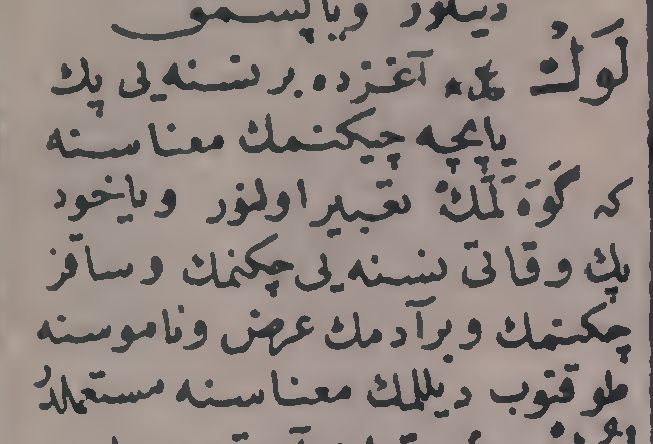 دينلور ويا پسمو
لَوْكْ مله آغزده بر نسنه يى پك
پاپچه چيكنمك معناسنه
كه كَوَه لَمَك تعبير اولنور وياخود
پك وقاتى نسنه يى چكنمك وساقز
چكنمك وبر آدمك عرض وناموسنه
طوقنوب ديللمك معناسنه مستعملدُر